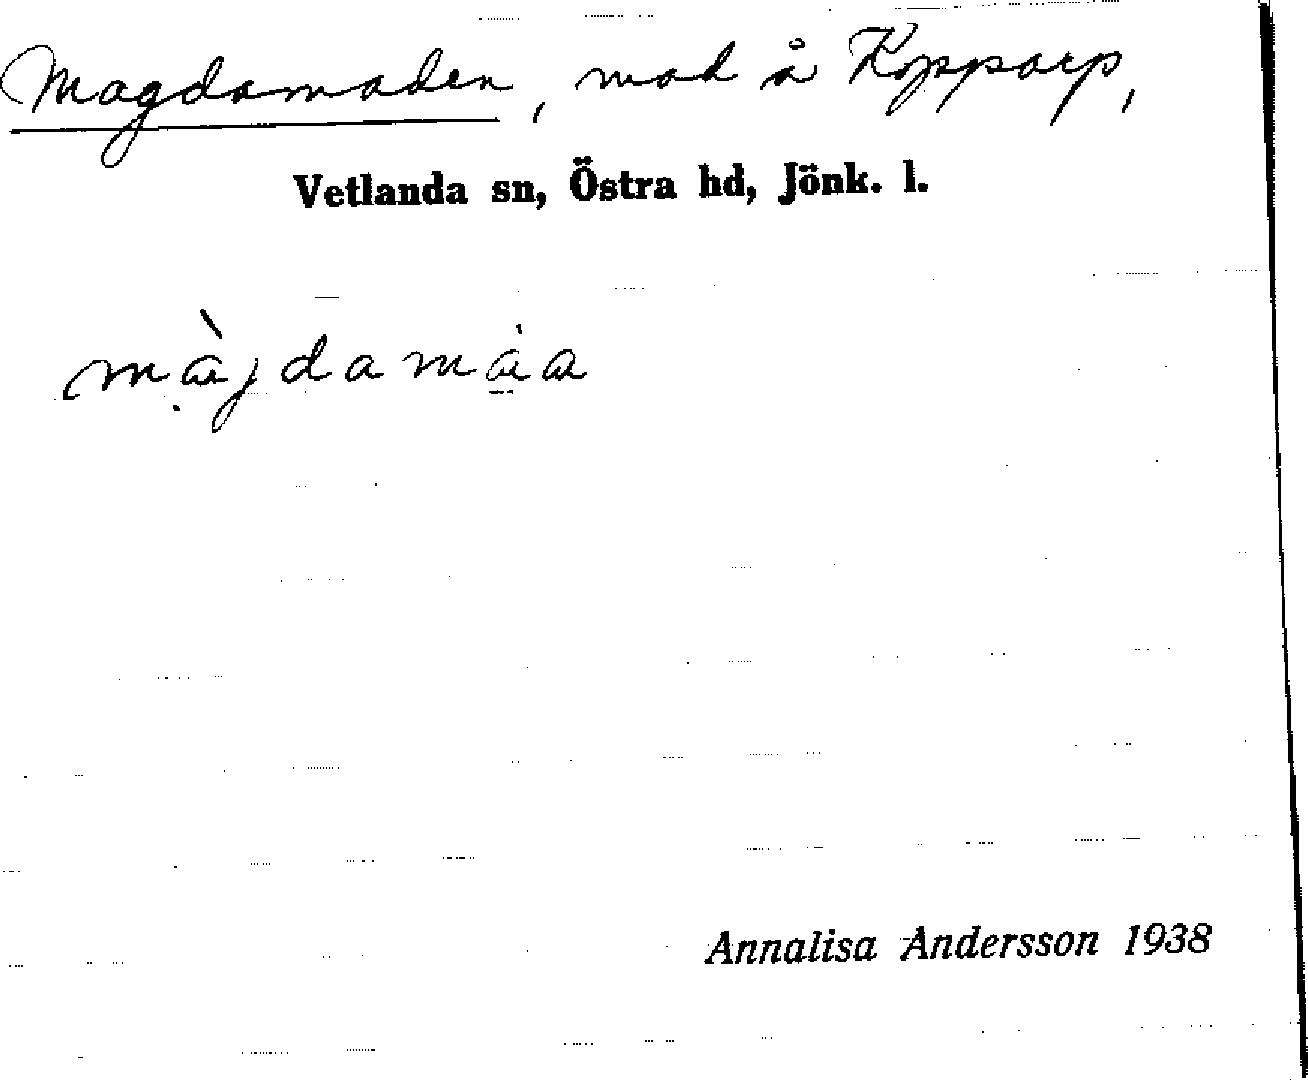 Magdamaden, mad å Kopparp,
Vetlanda sn, Östra hd, Jönk. l.
màjdamàa
Annalisa Andersson 1938